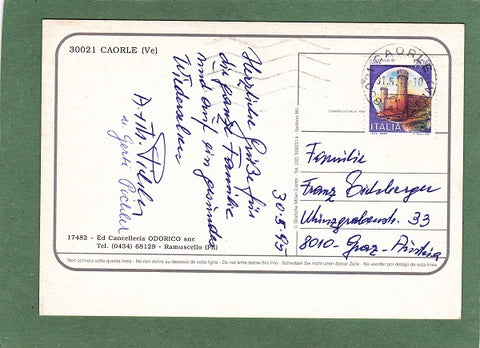 30021 CAORLE (Ve)
Herzliche Grüße für
die ganze Familie
und auf ein gesundes
Wiedersehen
A. Fritz
u. Gerti Pichler
30.5.95
CAORLE
ITALIA
Familie
Franz
33
8010 - Graz - Austria
17482 - Ed Cancelleria ODORICO snc
Tel. (0434) 68129 - Ramuscello (Pn)
Non scrivere sotto questa linea - Ne rien écrire au dessous de cette ligne - Do not write below this line - Schreiben Sie nicht unter dieser Zeile - No escribir por debajo de esta línea